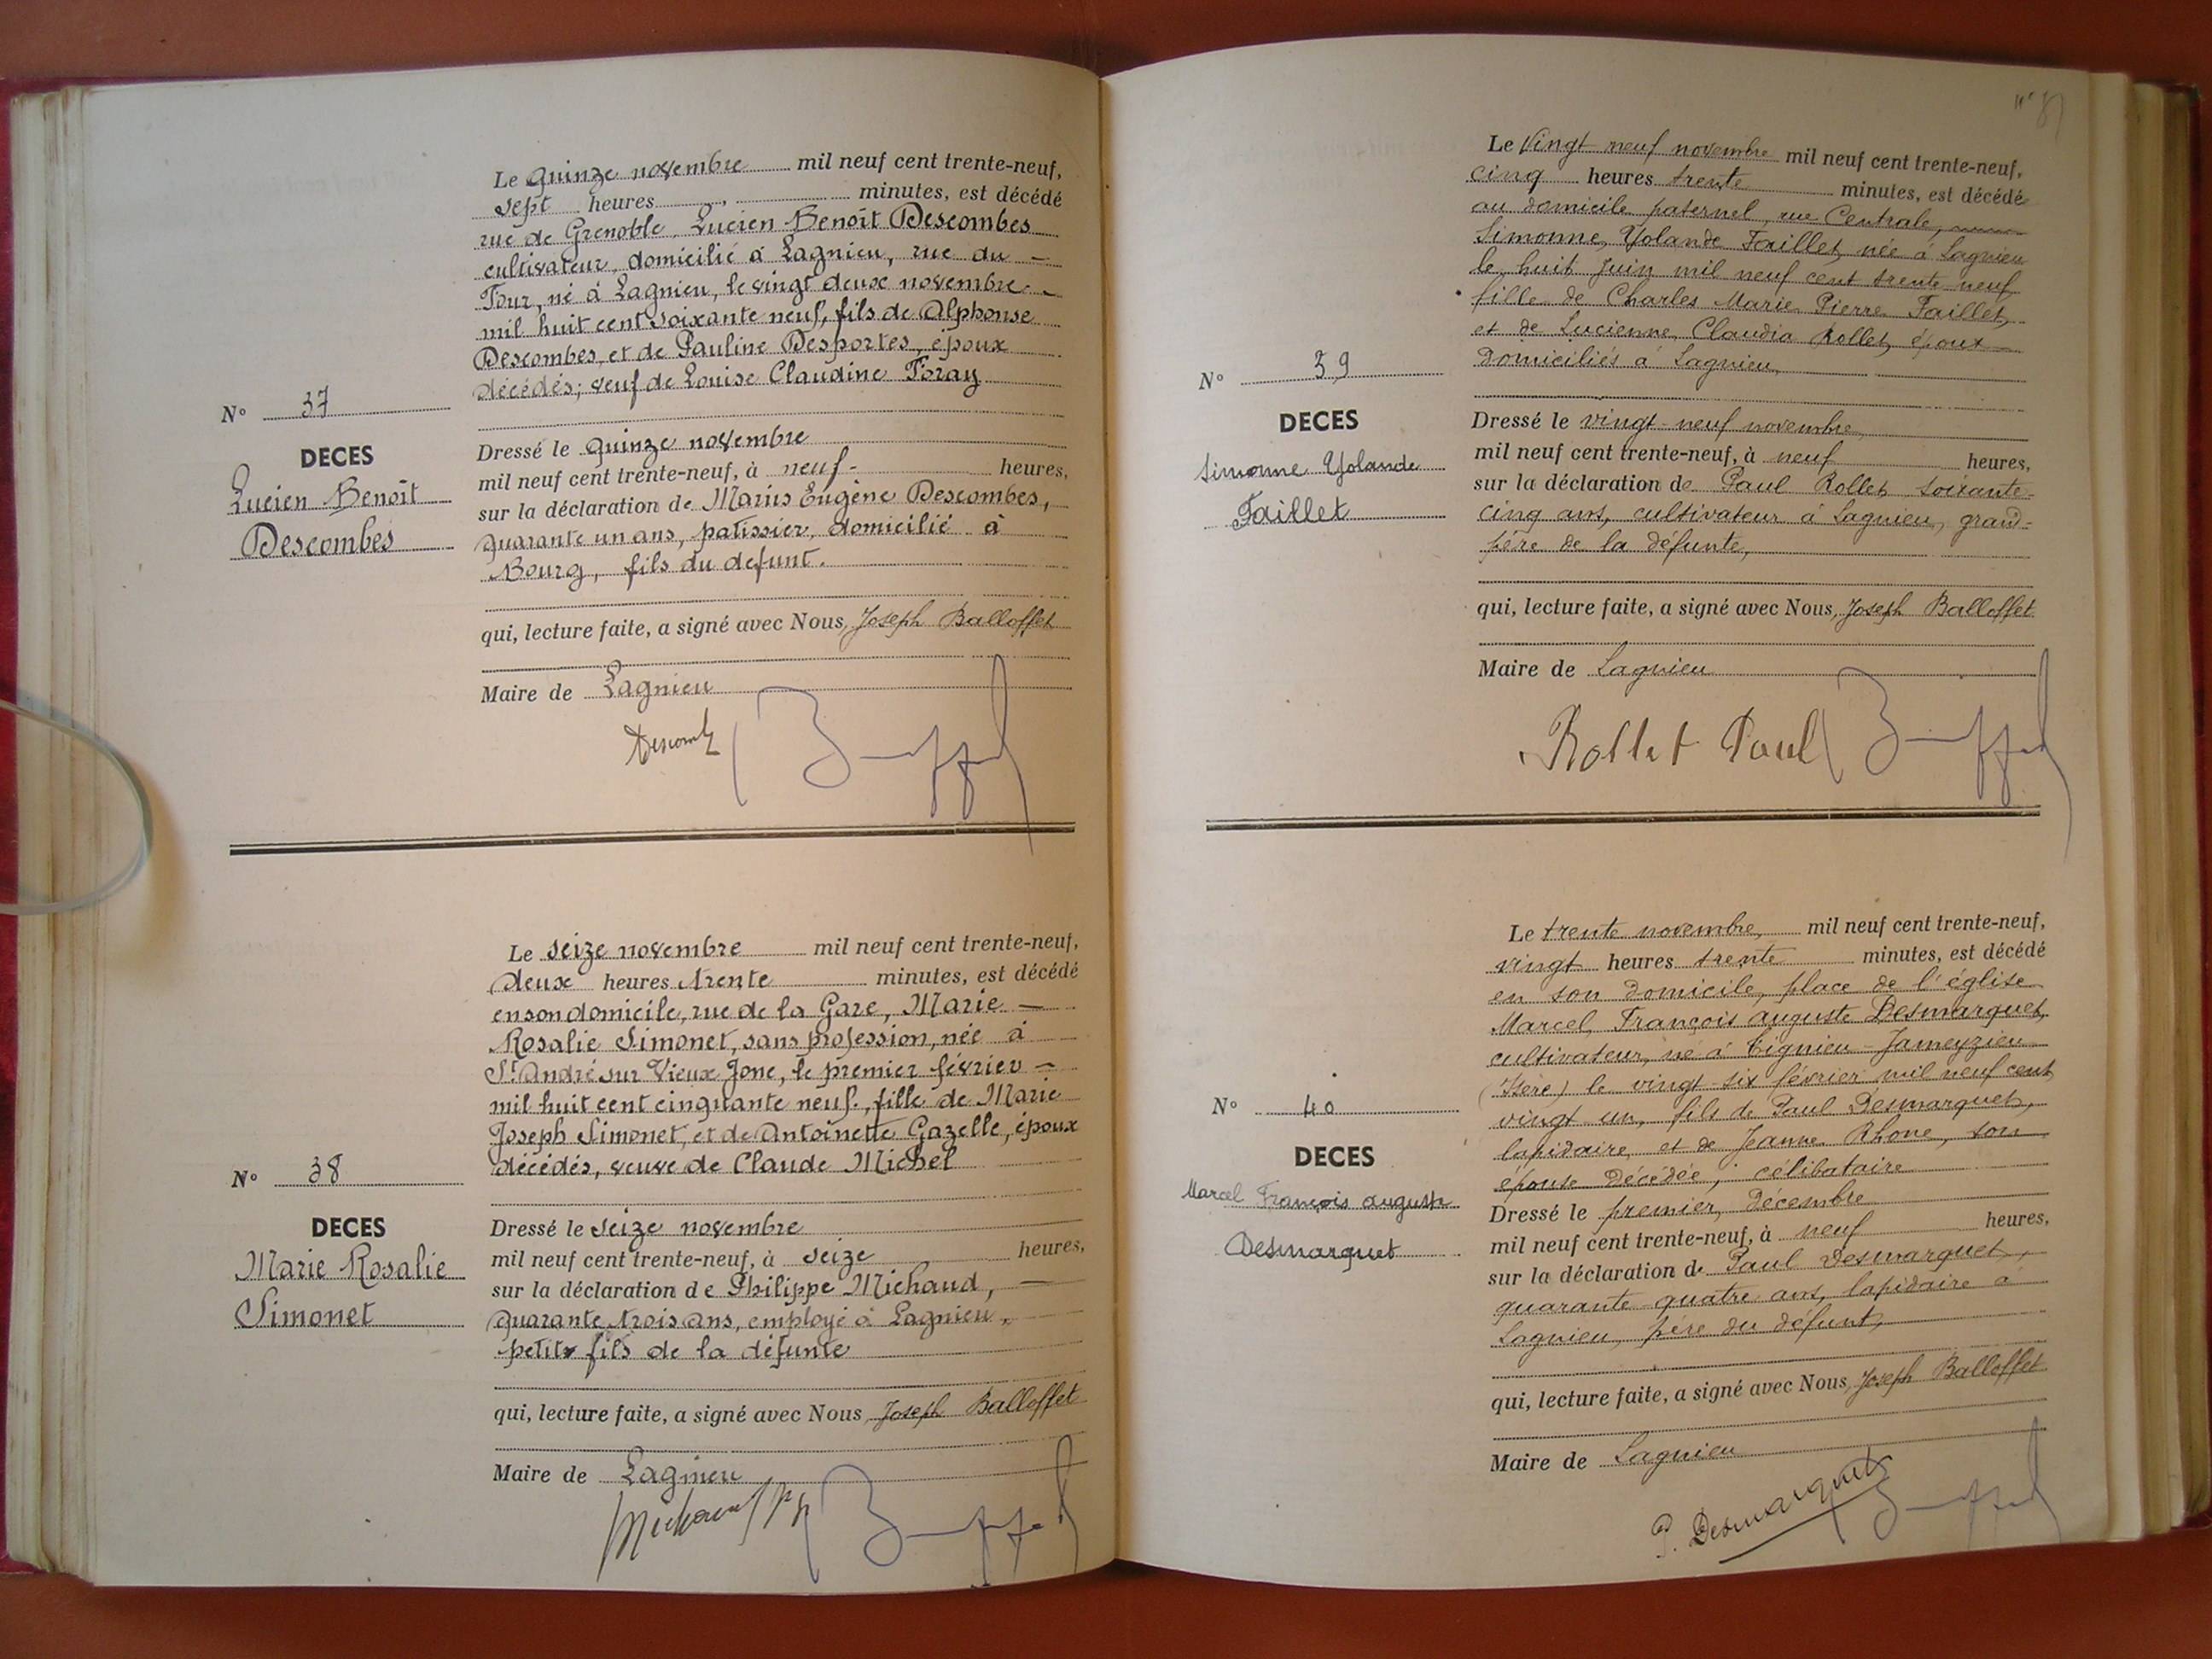 Le quinze novembre mil neuf cent trente-neuf,
sept heures, minutes, est décédé
rue de Grenoble, Lucien Benoît Descombes
cultivateur, domicilié à Lagnieu, rue du —
Four, né à Lagnieu, le vingt deux novembre —
mil huit cent soixante neuf, fils de Alphonse
Descombes, et de Pauline Desportes, époux
décédés; veuf de Louise Claudine Foray
N° 37
DECES
Lucien Benoît
Descombes
Dressé le quinze novembre
mil neuf cent trente-neuf, à neuf - heures,
sur la déclaration de Marius Eugène Descombes,
quarante un ans, patissier, domicilié à
Bourg, fils du defunt.
qui, lecture faite, a signé avec Nous, Joseph Balloffet
Maire de Lagnieu
Le seize novembre mil neuf cent trente-neuf,
deux heures trente minutes, est décédé
en son domicile, rue de la Gare, Marie —
Rosalie Simonet, sans profession, née à
St André sur Vieux Jonc, le premier février —
mil huit cent cinquante neuf, fille de Marie
Joseph Simonet, et de Antoinette Gazelle, époux
décédés, veuve de Claude Michel
N° 38
DECES
Marie Rosalie
Simonet
Dressé le seize novembre
mil neuf cent trente-neuf, à seize heures,
sur la déclaration de Philippe Michaud, —
quarante trois ans, employé à Lagnieu,
petit fils de la défunte
qui, lecture faite, a signé avec Nous, Joseph Balloffet
Maire de Lagnieu
Le vingt neuf novembre mil neuf cent trente-neuf,
cinq heures trente minutes, est décédé
au domicile paternel, rue Centrale,
Simonne, Yolande Faillet, née à Lagnieu
le huit Juin mil neuf cent trente neuf
fille de Charles Marie Pierre Faillet,
et de Lucienne, Claudia Rollet, époux
domiciliés à Lagnieu,
N° 39
DECES
Simonne Yolande
Faillet
Dressé le vingt-neuf novembre,
mil neuf cent trente-neuf, à neuf heures,
sur la déclaration de Paul Rollet, soixante-
cinq ans, cultivateur à Lagnieu, grand-
père de la défunte,
qui, lecture faite, a signé avec Nous, Joseph Balloffet
Maire de Lagnieu
Rollet Paul
Le trente novembre, mil neuf cent trente-neuf,
vingt heures trente minutes, est décédé
en son domicile, place de l'église
Marcel, François Auguste Desmarquet,
cultivateur, né à Tignieu-Jameyzieu
(Isère) le vingt-six février mil neuf cent
vingt un, fils de Paul Desmarquet,
lapidaire, et de Jeanne Rhône, son
épouse décédée; célibataire
N° 40
DECES
Marcel François Auguste
Desmarquet
Dressé le premier, Décembre
mil neuf cent trente-neuf, à neuf heures,
sur la déclaration de Paul Desmarquet,
quarante-quatre ans, lapidaire à
Lagnieu, père du défunt,
qui, lecture faite, a signé avec Nous, Joseph Balloffet
Maire de Lagnieu
P. Desmarquet